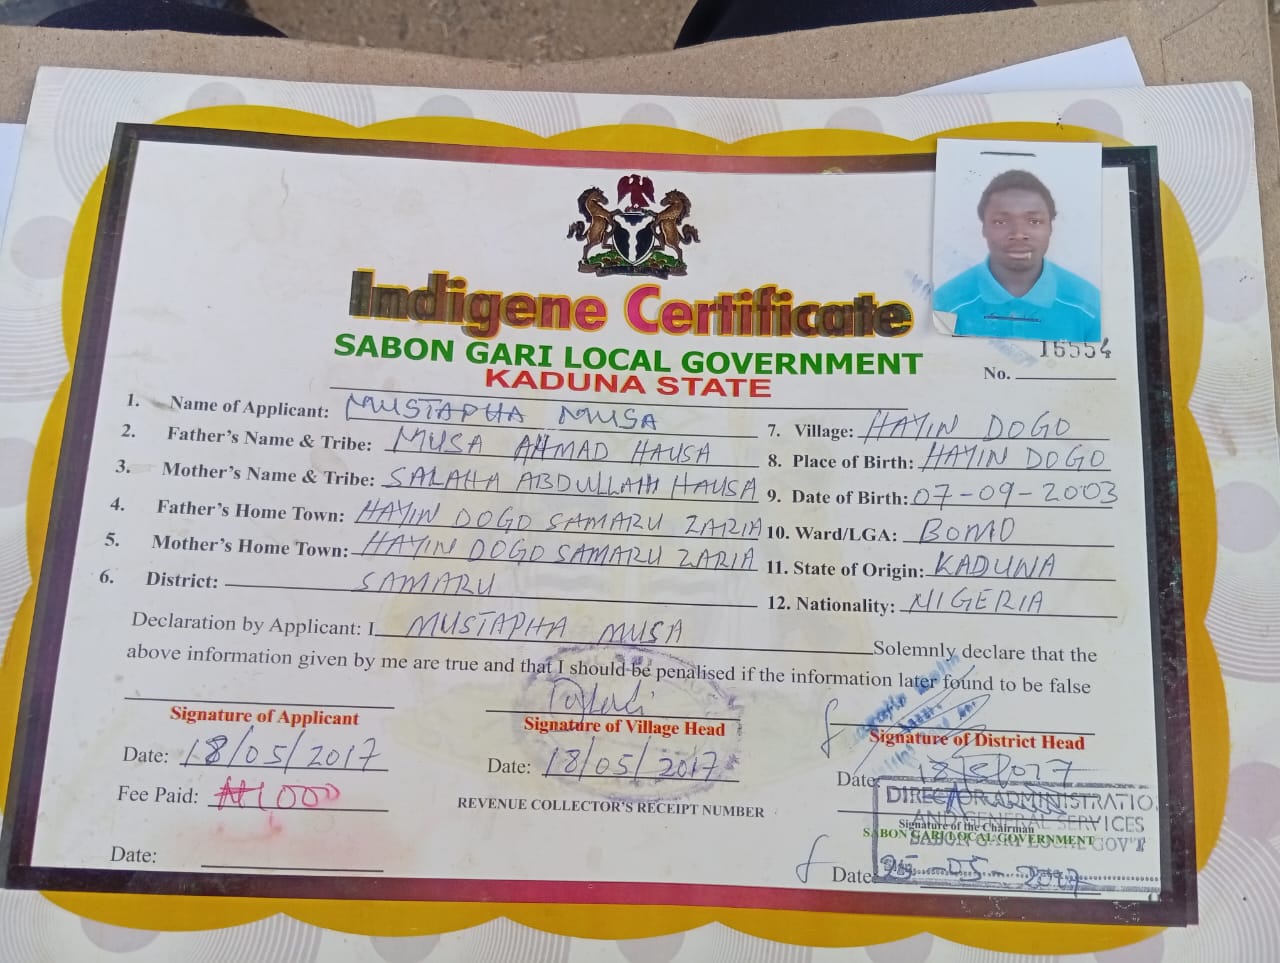 Indigene Certificate
SABON GARI LOCAL GOVERNMENT
KADUNA STATE
No. 16554
1. Name of Applicant: MUSTAPHA MUSA
2. Father's Name & Tribe: MUSA AHMAD HAUSA
3. Mother's Name & Tribe: SALAHA ABDULLAHI HAUSA
4. Father's Home Town: HAYIN DOGO SAMARU ZARIA
5. Mother's Home Town: HAYIN DOGO SAMARU ZARIA
6. District: SAMARU
7. Village: HAYIN DOGO
8. Place of Birth: HAYIN DOGO
9. Date of Birth: 07-09-2003
10. Ward/LGA: BOMO
11. State of Origin: KADUNA
12. Nationality: NIGERIA
Declaration by Applicant: I MUSTAPHA MUSA Solemnly declare that the
above information given by me are true and that I should be penalised if the information later found to be false
Signature of Applicant
Date: 18/05/2017
Fee Paid: ₦1000
Date:
Signature of Village Head
Date: 18/05/2017
REVENUE COLLECTOR'S RECEIPT NUMBER
f
Signature of District Head
Date: 18/5/2017
DIRECTOR ADMINISTRATIO
AND GENERAL SERVICES
Signature of the Chairman
SABON GARI LOCAL GOVERNMENT
SABON GARI LOCAL GOV'T
f
Date: 25-05-2017